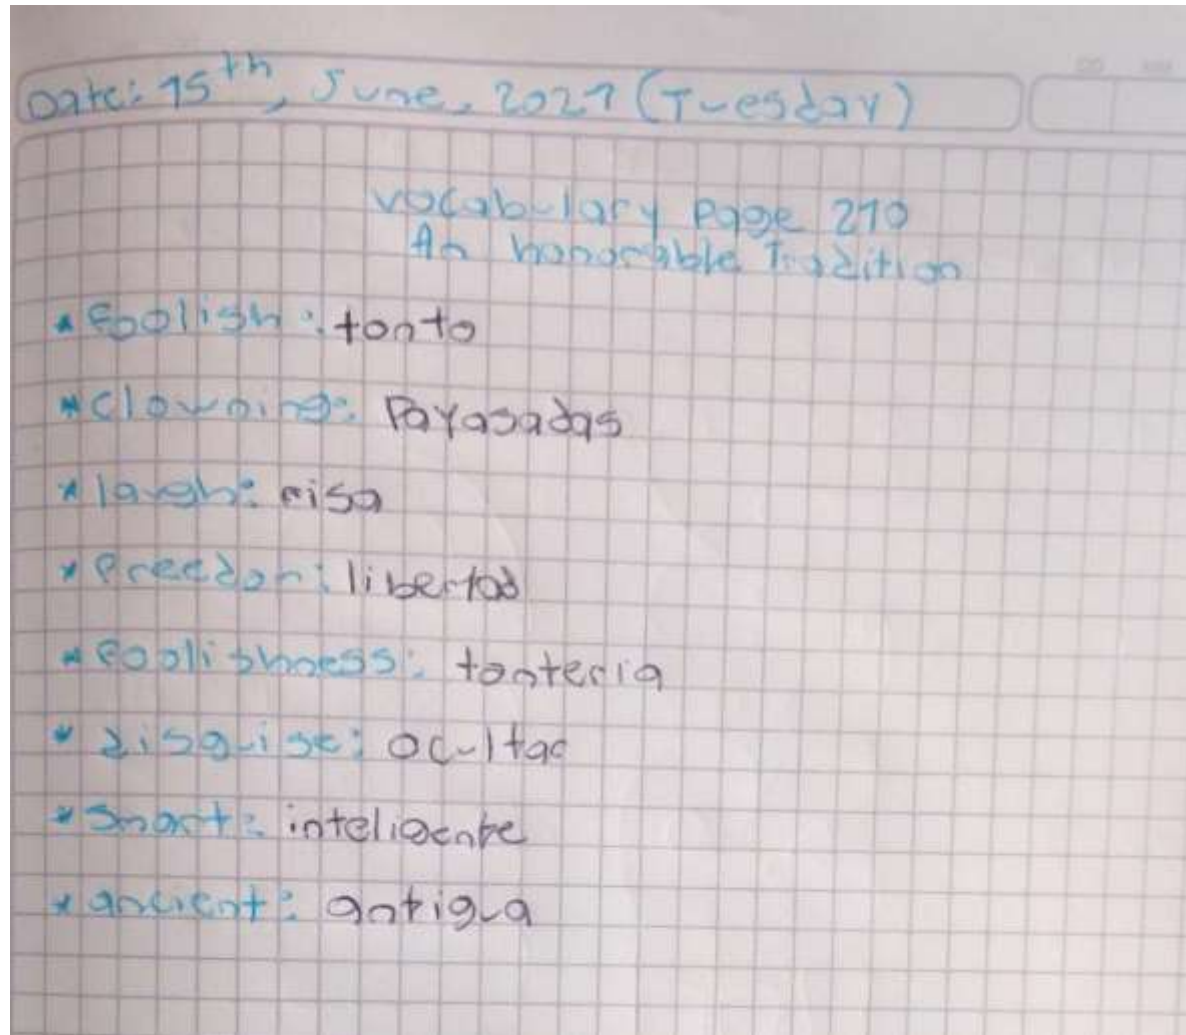 Date: 15th, June, 2021 (Tuesday)
Vocabulary Page 210
An honorable Tradition
* foolish: tonto
* clowning: Payasadas
* laugh: risa
* freedon: libertad
* foolishness: tonteria
* disguise: ocultar
* smart: inteligente
* ancient: antigua